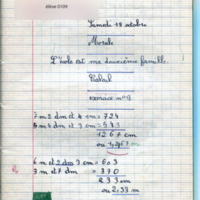 élève 0109
Samedi 18 octobre
Morale
L'école est ma deuxième famille.
Calcul
exercice n°
7 m 2 dm et 4 cm = 724
5 m 4 dm 3 cm = 543
1267 cm
ou 1,267 m
6 m et 2 dm 3 cm = 603
3 m et 7 dm = 370
233 cm
ou 2,33 m